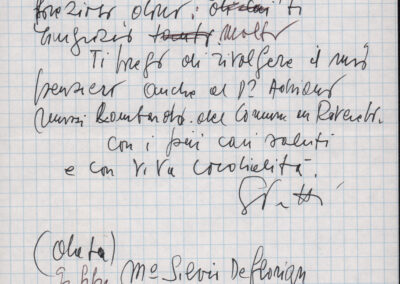 prezioso dono: ti
ringrazio tanto molto
Ti prego di rivolgere il mio
pensiero anche al D? Adriano
del Comune di Rovereto.
con i più cari saluti
e con viva cordialità.
(data)
Mº Silvio Deflorian